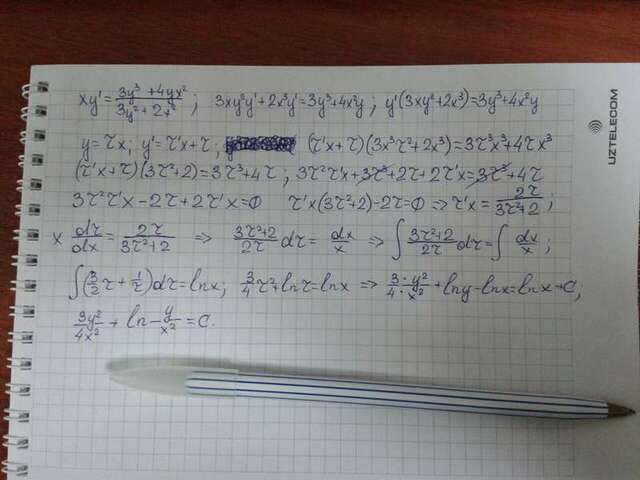 xy' = (3y³ + 4yx²)/(3y² + 2x²); 3xy²y' + 2x³y' = 3y³ + 4x²y; y'(3xy² + 2x³) = 3y³ + 4x²y
y = τx; y' = τ'x + τ; (τ'x + τ)(3x³τ² + 2x³) = 3τ³x³ + 4τx³
(τ'x + τ)(3τ² + 2) = 3τ³ + 4τ; 3τ²τ'x + 3τ³ + 2τ + 2τ'x = 3τ³ + 4τ
3τ²τ'x − 2τ + 2τ'x = 0 τ'x(3τ² + 2) − 2τ = 0 => τ'x = 2τ/(3τ² + 2);
x dτ/dx = 2τ/(3τ² + 2) => (3τ² + 2)/2τ dτ = dx/x => ∫ (3τ² + 2)/2τ dτ = ∫ dx/x;
∫(3/2 τ + 1/τ)dτ = ln x; 3/4 τ² + ln τ = ln x => 3/4 · y²/x² + ln y − ln x = ln x + C;
3y²/4x² + ln − y/x² = C.
UZTELECOM